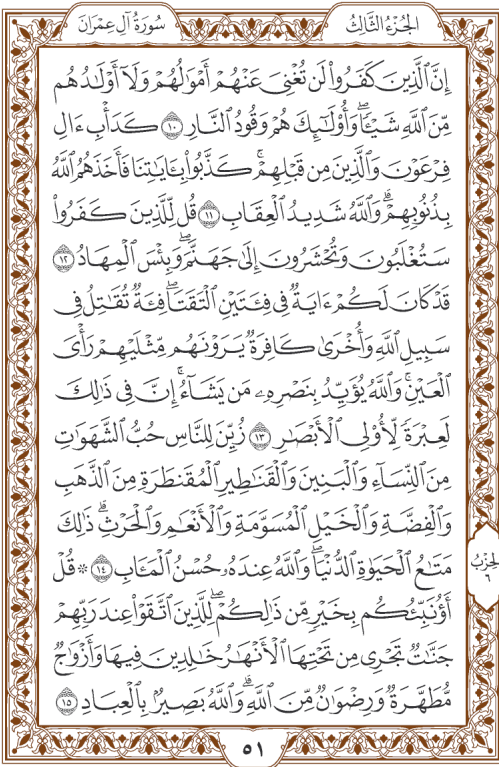 الجُزْءُ الثَّالِثُ
سُورَةُ آلِ عِمْرَانَ
إِنَّ ٱلَّذِينَ كَفَرُوا۟ لَن تُغْنِىَ عَنْهُمْ أَمْوَٰلُهُمْ وَلَآ أَوْلَـٰدُهُم
مِّنَ ٱللَّهِ شَيْـًٔا ۖ وَأُو۟لَـٰٓئِكَ هُمْ وَقُودُ ٱلنَّارِ ١٠ كَدَأْبِ ءَالِ
فِرْعَوْنَ وَٱلَّذِينَ مِن قَبْلِهِمْ ۚ كَذَّبُوا۟ بِـَٔايَـٰتِنَا فَأَخَذَهُمُ ٱللَّهُ
بِذُنُوبِهِمْ ۗ وَٱللَّهُ شَدِيدُ ٱلْعِقَابِ ١١ قُل لِّلَّذِينَ كَفَرُوا۟
سَتُغْلَبُونَ وَتُحْشَرُونَ إِلَىٰ جَهَنَّمَ ۚ وَبِئْسَ ٱلْمِهَادُ ١٢
قَدْ كَانَ لَكُمْ ءَايَةٌ فِى فِئَتَيْنِ ٱلْتَقَتَا ۖ فِئَةٌ تُقَـٰتِلُ فِى
سَبِيلِ ٱللَّهِ وَأُخْرَىٰ كَافِرَةٌ يَرَوْنَهُم مِّثْلَيْهِمْ رَأْىَ
ٱلْعَيْنِ ۚ وَٱللَّهُ يُؤَيِّدُ بِنَصْرِهِۦ مَن يَشَآءُ ۗ إِنَّ فِى ذَٰلِكَ
لَعِبْرَةً لِّأُو۟لِى ٱلْأَبْصَـٰرِ ١٣ زُيِّنَ لِلنَّاسِ حُبُّ ٱلشَّهَوَٰتِ
مِنَ ٱلنِّسَآءِ وَٱلْبَنِينَ وَٱلْقَنَـٰطِيرِ ٱلْمُقَنطَرَةِ مِنَ ٱلذَّهَبِ
وَٱلْفِضَّةِ وَٱلْخَيْلِ ٱلْمُسَوَّمَةِ وَٱلْأَنْعَـٰمِ وَٱلْحَرْثِ ۗ ذَٰلِكَ
مَتَـٰعُ ٱلْحَيَوٰةِ ٱلدُّنْيَا ۖ وَٱللَّهُ عِندَهُۥ حُسْنُ ٱلْمَـَٔابِ ١٤ ۞ قُلْ
أَؤُنَبِّئُكُم بِخَيْرٍ مِّن ذَٰلِكُمْ ۚ لِلَّذِينَ ٱتَّقَوْا۟ عِندَ رَبِّهِمْ
جَنَّـٰتٌ تَجْرِى مِن تَحْتِهَا ٱلْأَنْهَـٰرُ خَـٰلِدِينَ فِيهَا وَأَزْوَٰجٌ
مُّطَهَّرَةٌ وَرِضْوَٰنٌ مِّنَ ٱللَّهِ ۗ وَٱللَّهُ بَصِيرٌۢ بِٱلْعِبَادِ ١٥
الحِزْبُ
٦
٥١